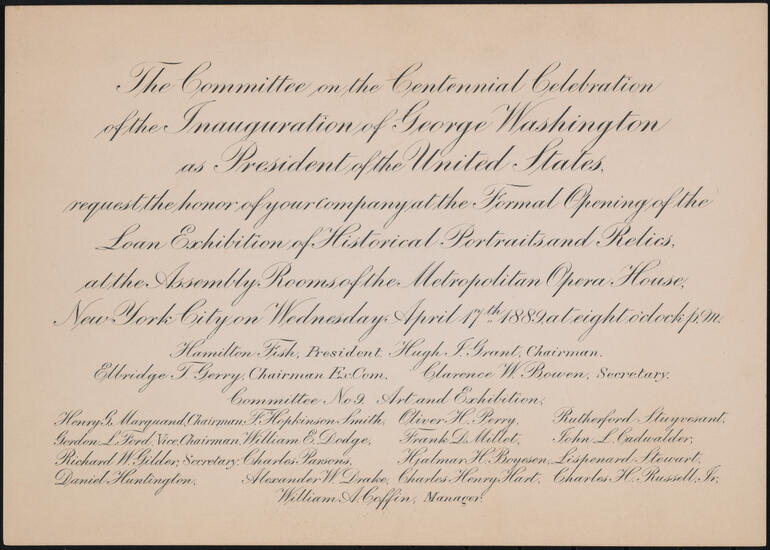 The Committee on the Centennial Celebration
of the Inauguration of George Washington
as President of the United States,
request the honor of your company at the Formal Opening of the
Loan Exhibition of Historical Portraits and Relics,
at the Assembly Rooms of the Metropolitan Opera House,
New York City, on Wednesday April 17th 1889, at eight o'clock p.m.
Hamilton Fish, President. Hugh J. Grant, Chairman.
Elbridge T. Gerry, Chairman Ex. Com. Clarence W. Bowen, Secretary.
Committee No 9. Art and Exhibition.
Henry G. Marquand, Chairman, F. Hopkinson Smith, Oliver H. Perry, Rutherford Stuyvesant,
Gordon L. Ford, Vice Chairman, William E. Dodge, Frank D. Millet, John L. Cadwalder,
Richard W. Gilder, Secretary, Charles Parsons, Hjalmar H. Boyesen, Lispenard Stewart,
Daniel Huntington, Alexander W. Drake, Charles Henry Hart, Charles H. Russell, Jr,
William A. Coffin, Manager.